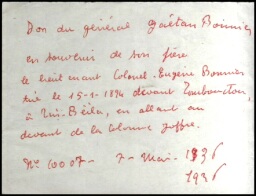 Don du général Gaëtan Bonnier
en souvenir de son frère
le lieutenant Colonel Eugène Bonnier
tué le 15-1-1894 devant Tombouctou,
à Tin-Beïla, en allant au
devant de la Colonne Joffre.
No 10007 - 7 - Mai - 1936
1936